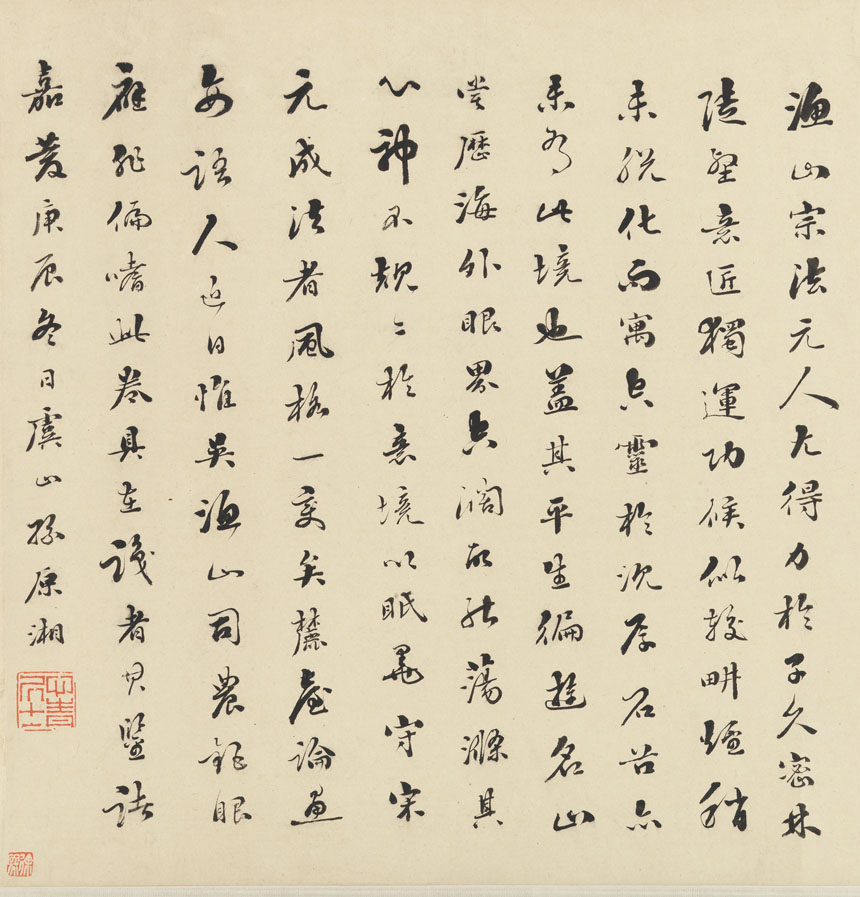 漁山宗法元人尤得力於子久密林
陡壑意匠獨運功候似較畊煙稍
未脫化而寓空靈於沈厚石谷亦
未有此境也蓋其平生徧遊名山
嘗歷海外眼界空濶故能蕩滌其
心神不規〻於意境以眂墨守宋
元成法者風格一變矣麓臺論畫
每語人近日惟吳漁山司農館眼
雁非偏嗜此卷具在識者其鑒諸
嘉慶庚辰冬日虞山孫原湘